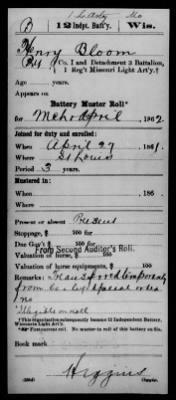 1 L. Arty Mo
B 12 Indpt. Batt'y Wis.
Henry Bloom
Pvt, Co. I and Detachment 2 Battalion,
1 Reg't Missouri Light Art'y.†
Age years.
Appears on
Battery Muster Roll*
for Mch & April, 1862.
Joined for duty and enrolled:
When April 27, 1861.
Where St Louis
Period 3 years.
Mustered in:
When , 186 .
Where
Present or absent Present
Stoppage, $ 100 for
Due Gov't $ 100 for
From Second Auditor's Roll.
Valuation of horse, $ 100
Valuation of horse equipments, $ 100
Remarks: Transferred temporarily
from Co
no
Illegible on roll
†This organization subsequently became 12 Independent Battery,
Wisconsin Light Art'y.
Book mark
Higgins
Copyist.